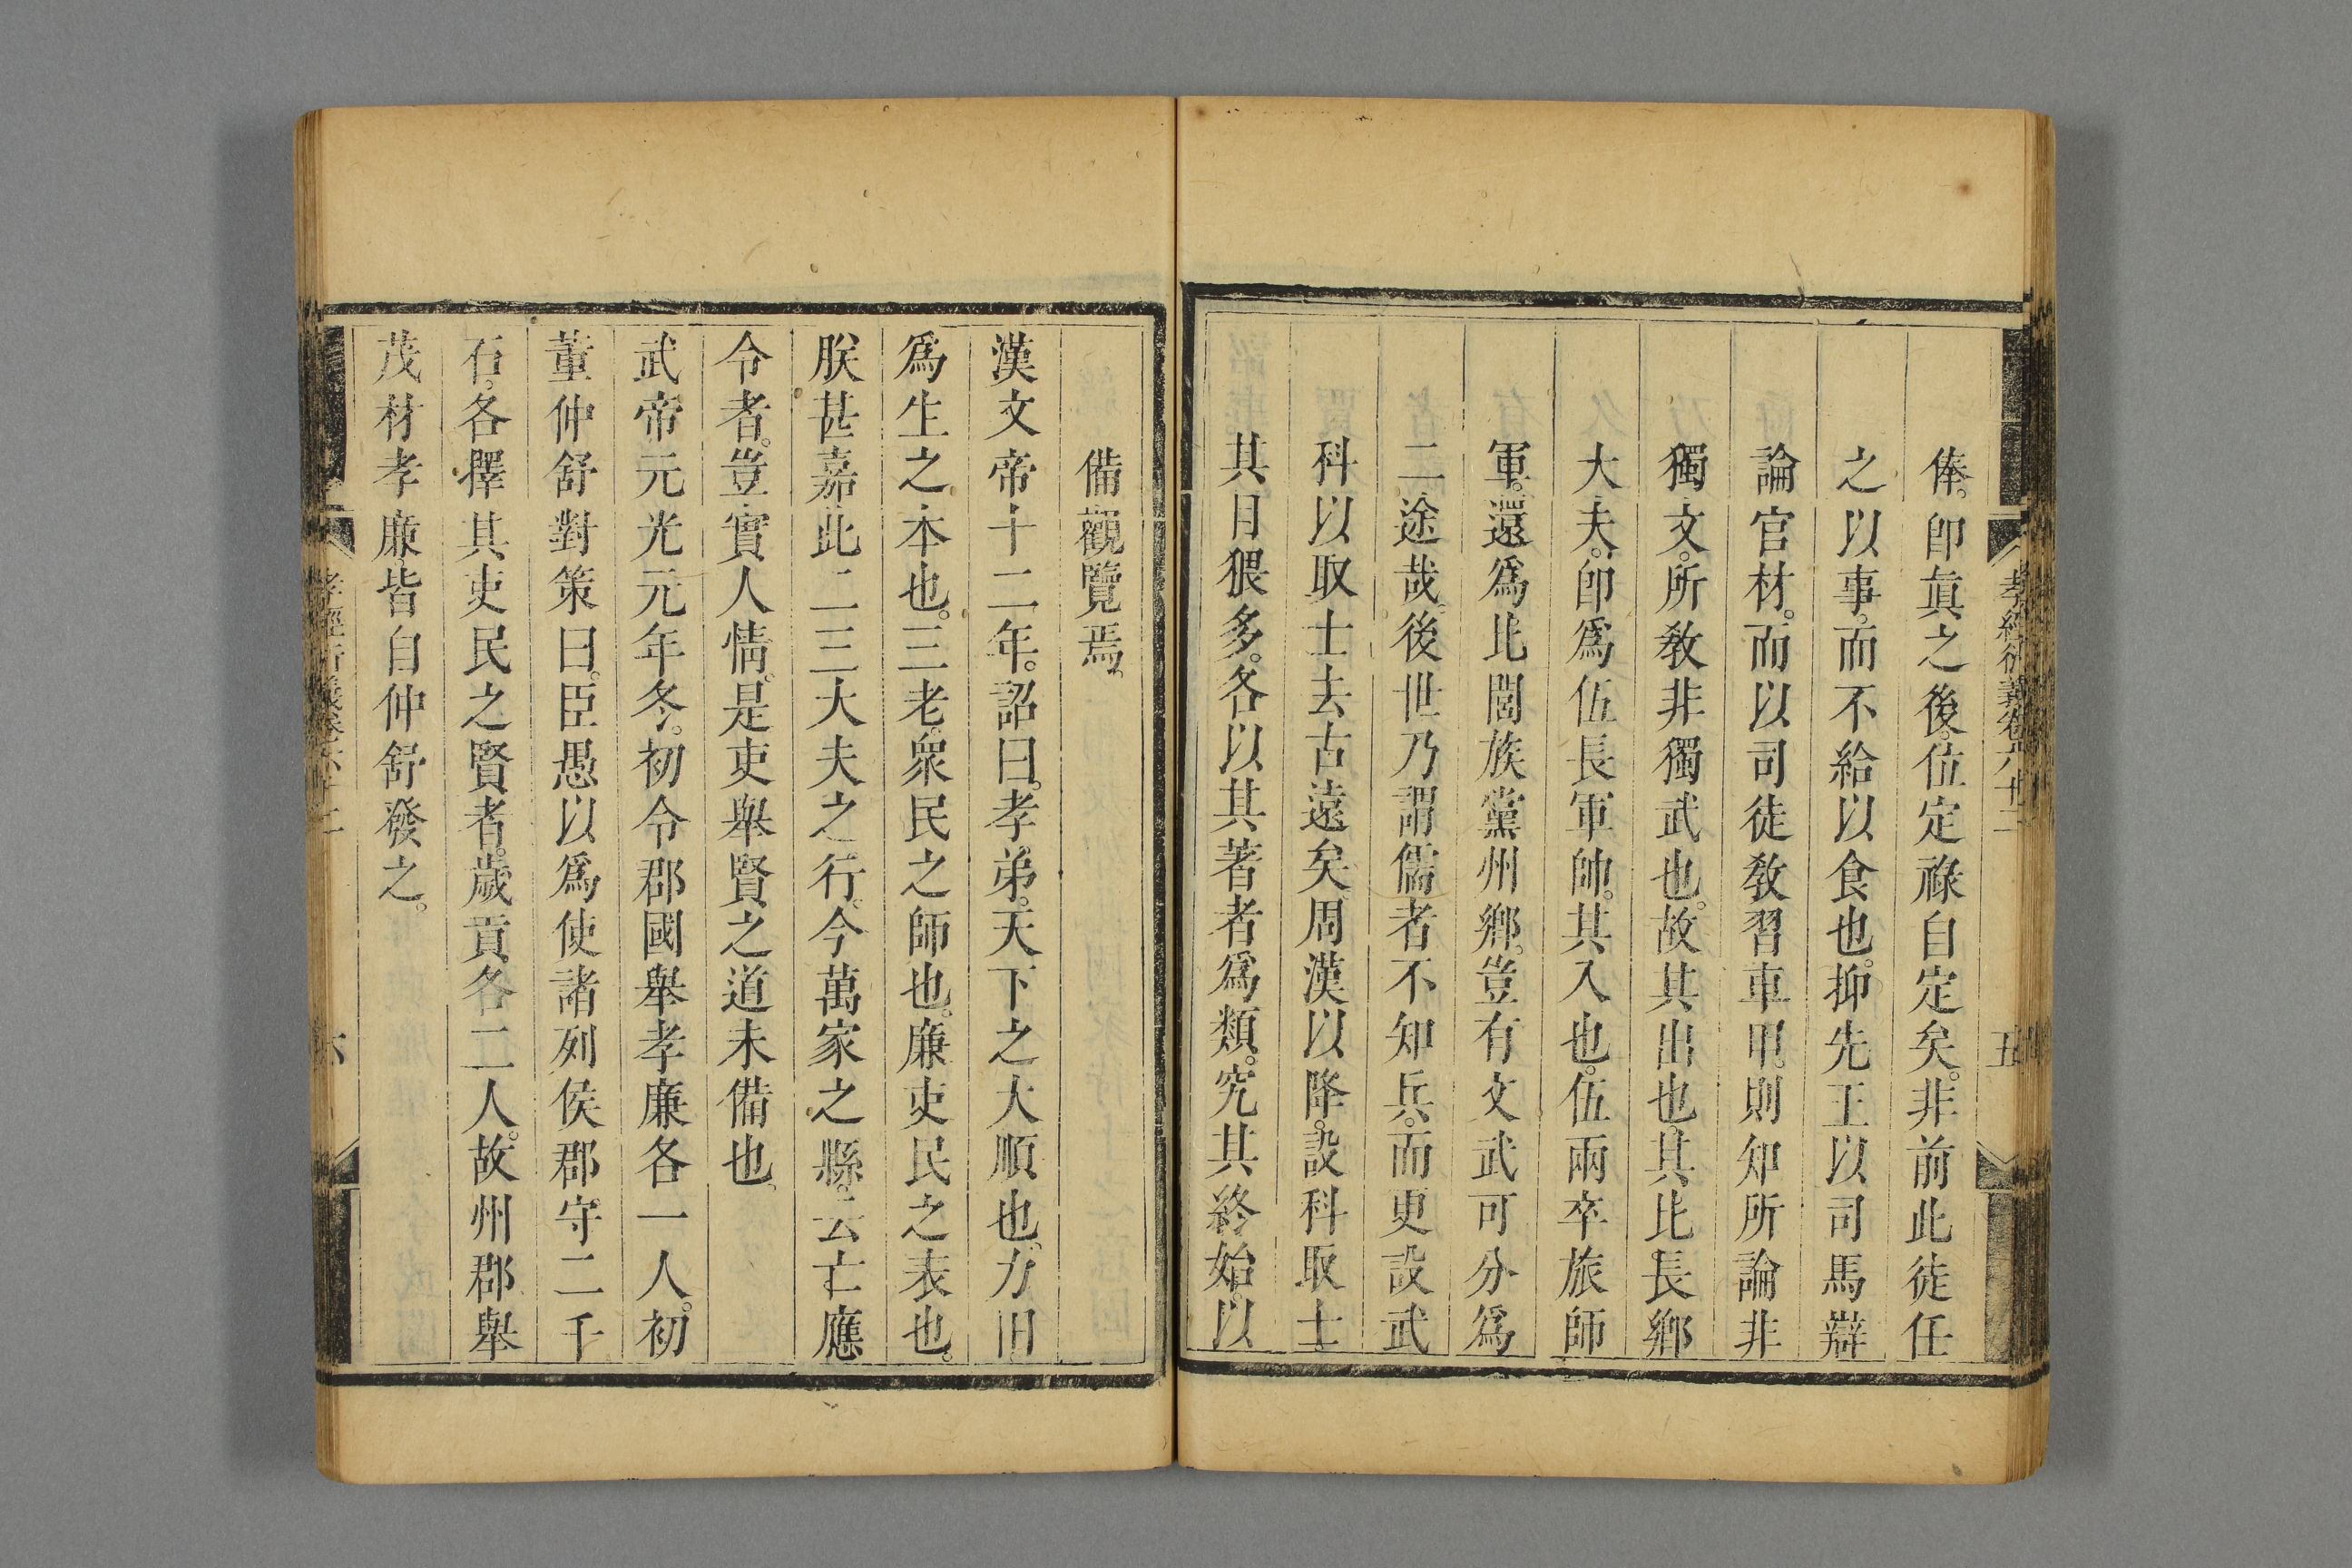 孝經衍義卷六十二
五
俸。卽眞之後。位定祿自定矣。非前此徒任
之以事。而不給以食也。抑先王以司馬辯
論官材。而以司徒敎習車甲。則知所論非
獨文。所敎非獨武也。故其出也。其比長鄕
大夫。卽爲伍長軍帥。其入也。伍兩卒旅師
軍。還爲比閭族黨州鄕。豈有文武可分爲
二途哉。後世乃謂儒者不知兵。而更設武
科以取士去古遠矣。周漢以降。設科取士
其目猥多。各以其著者爲類。究其終始。以
備觀覽焉。
漢文帝十二年。詔曰。孝弟。天下之大順也。力田
爲生之本也。三老。衆民之師也。廉吏民之表也。
朕甚嘉此二三大夫之行。今萬家之縣。云亡應
令者。豈實人情。是吏舉賢之道未備也。
武帝元光元年冬。初令郡國舉孝廉各一人。初
董仲舒對策曰。臣愚以爲使諸列侯郡守二千
石。各擇其吏民之賢者。歲貢各二人。故州郡舉
茂材孝廉。皆自仲舒發之。
孝經衍義卷六十二
六